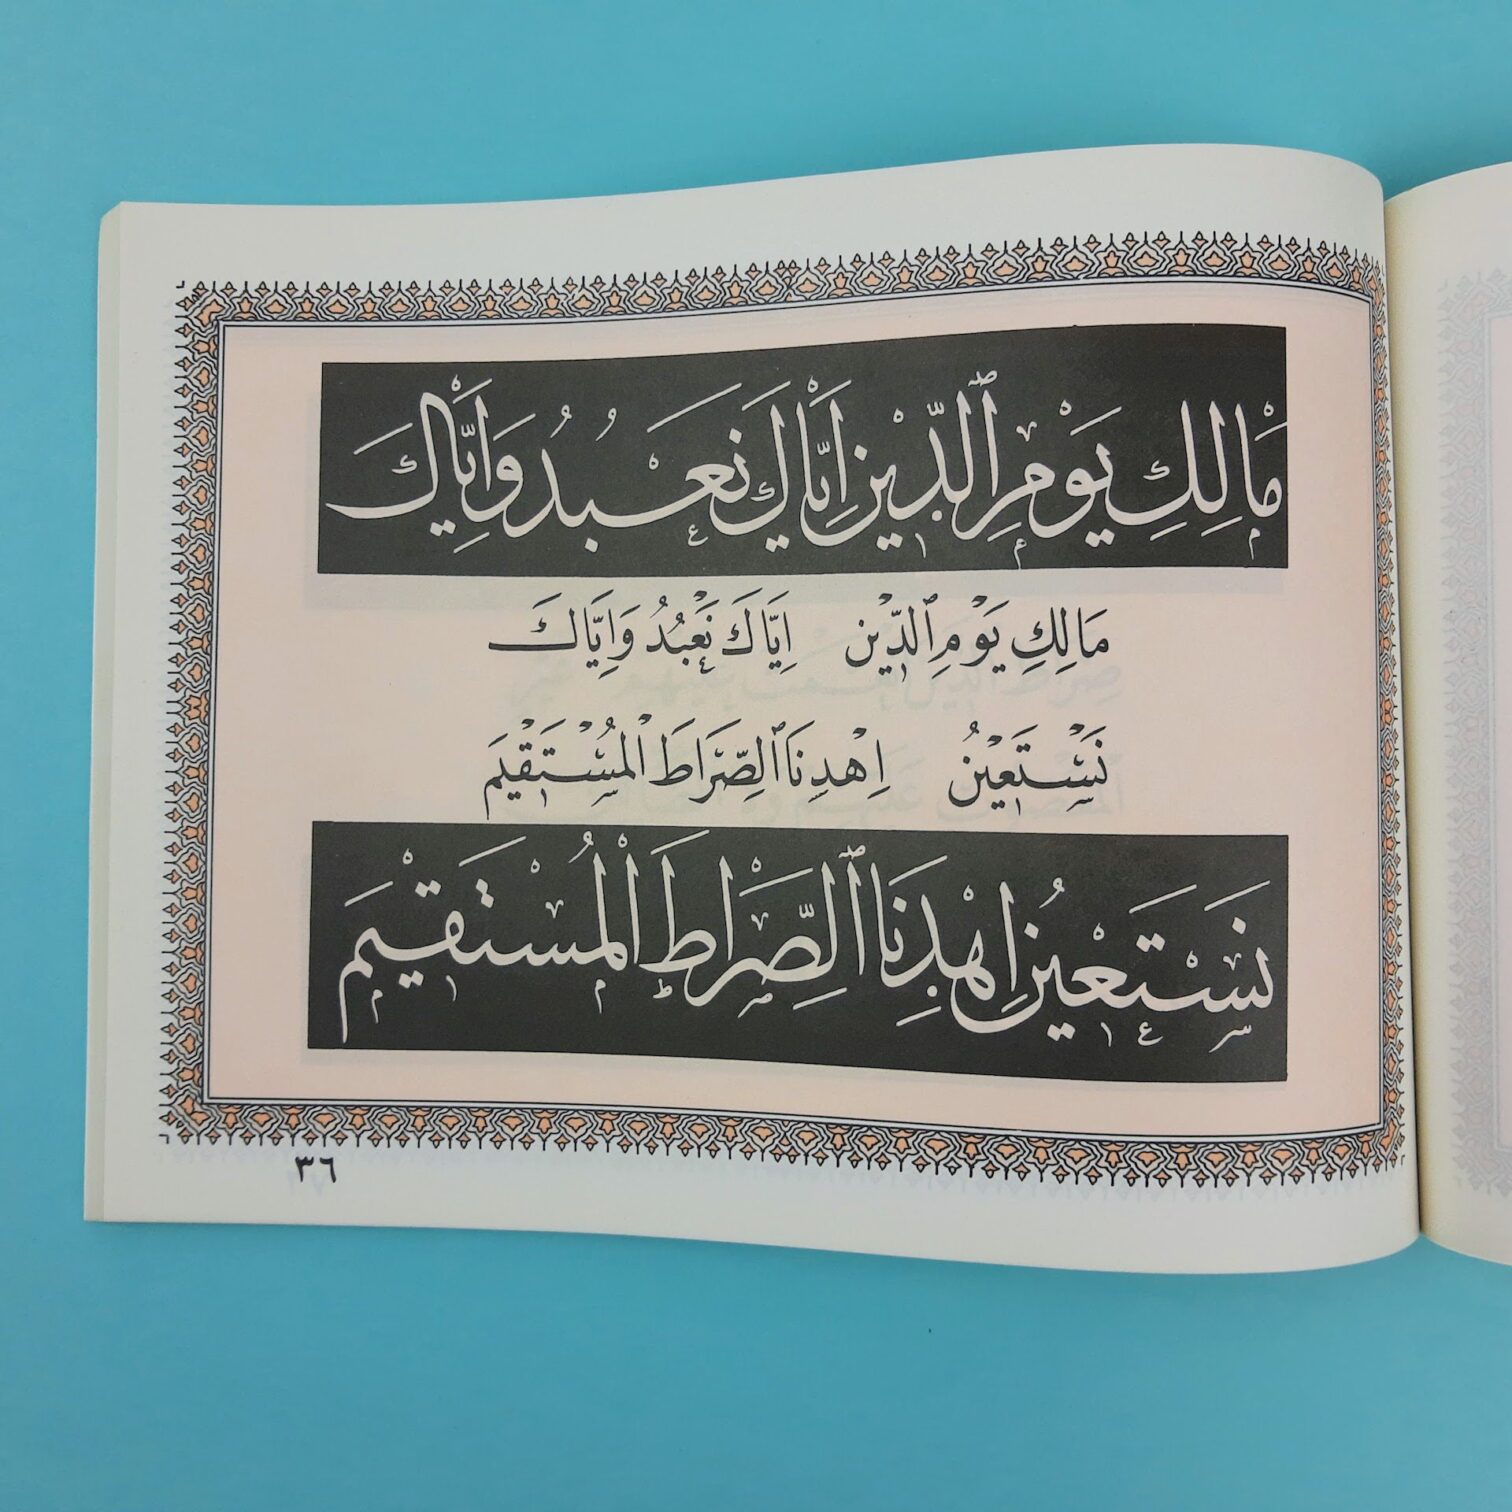 مَالِكِ يَوْمِ ٱلدِّيْنِ اِيَّاكَ نَعْبُدُ وَاِيَّاكَ
مَالِكِ يَوْمِ ٱلدِّيْنِ اِيَّاكَ نَعْبُدُ وَاِيَّاكَ
نَسْتَعِيْنُ اِهْدِنَا ٱلصِّرَاطَ الْمُسْتَقِيْمَ
نَسْتَعِيْنُ اِهْدِنَا ٱلصِّرَاطَ الْمُسْتَقِيْمَ
٣٦